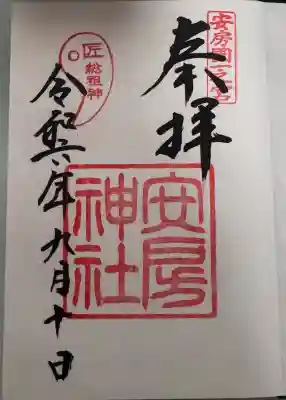 安房国一之宮
奉拝
安房
神社
匠
総祖神
令和六年九月十日